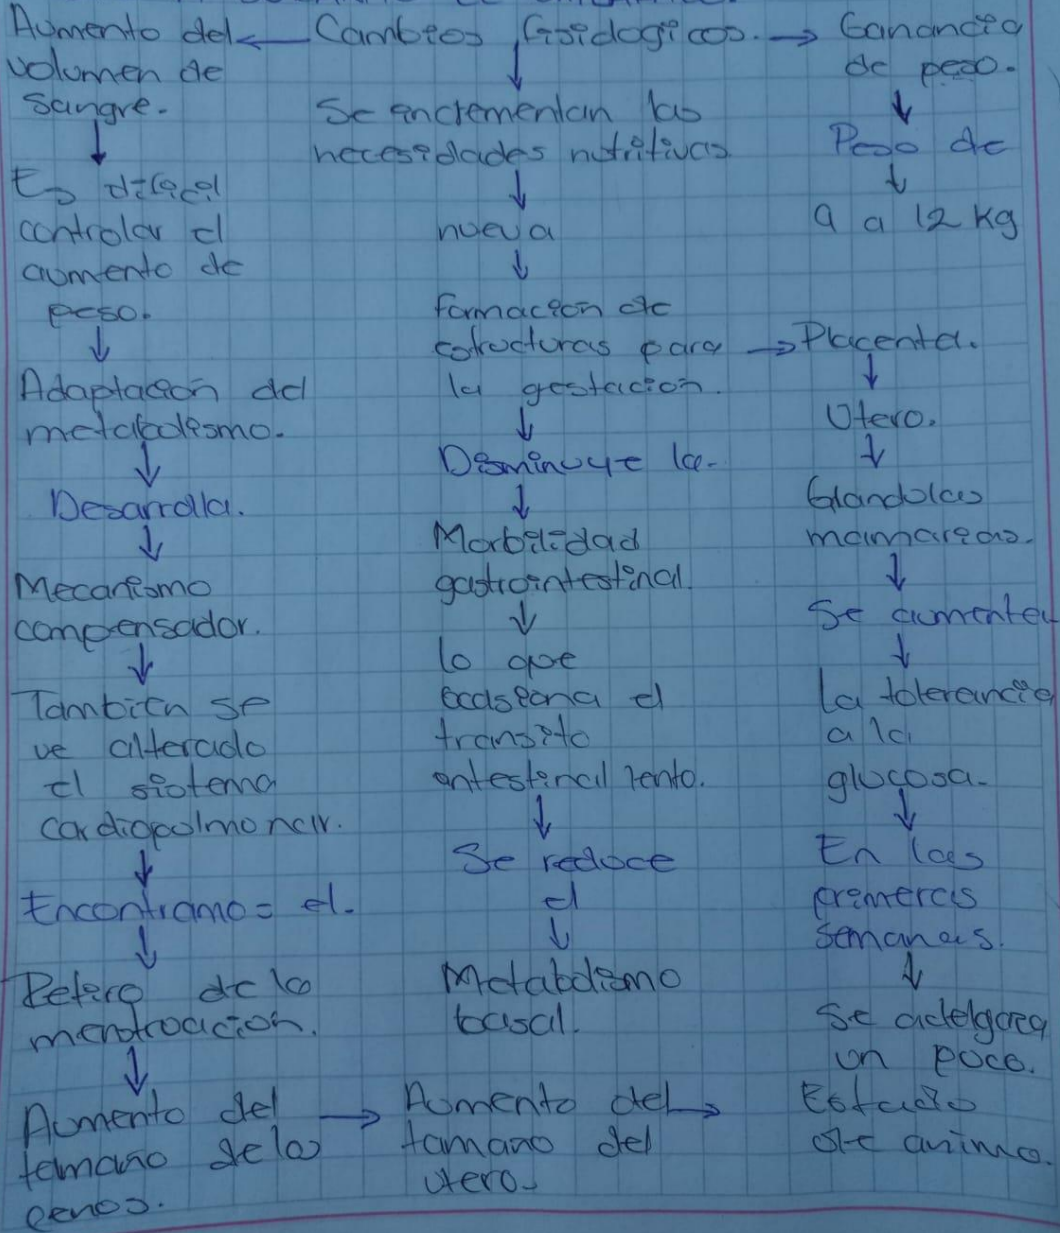 Cambios fisiologicos.
Aumento del
volumen de
sangre.
Es dificil
controlar el
aumento de
peso.
Adaptacion del
metabolismo.
Desarrolla.
Mecanismo
compensador.
Tambien se
ve alterado
el sistema
cardiopolmonar.
Encontramos el.
Retiro de la
menstruacion.
Aumento del
tamaño de los
senos.
Se incrementan las
necesidades nutritivas
nueva
formacion de
estructuras para
la gestacion.
Disminuye la.
Morbilidad
gastrointestinal.
lo que
ocasiona el
transito
intestinal lento.
Se reduce
el
Metabolismo
basal.
Aumento del
tamano del
utero.
Ganancia
de peso.
Peso de
9 a 12 Kg
Placenta.
Utero.
Glandulas
mamarias.
Se aumenta
la tolerancia
a la
glucosa.
En las
primeras
semanas.
Se adelgaza
un poco.
Estado
de animo.